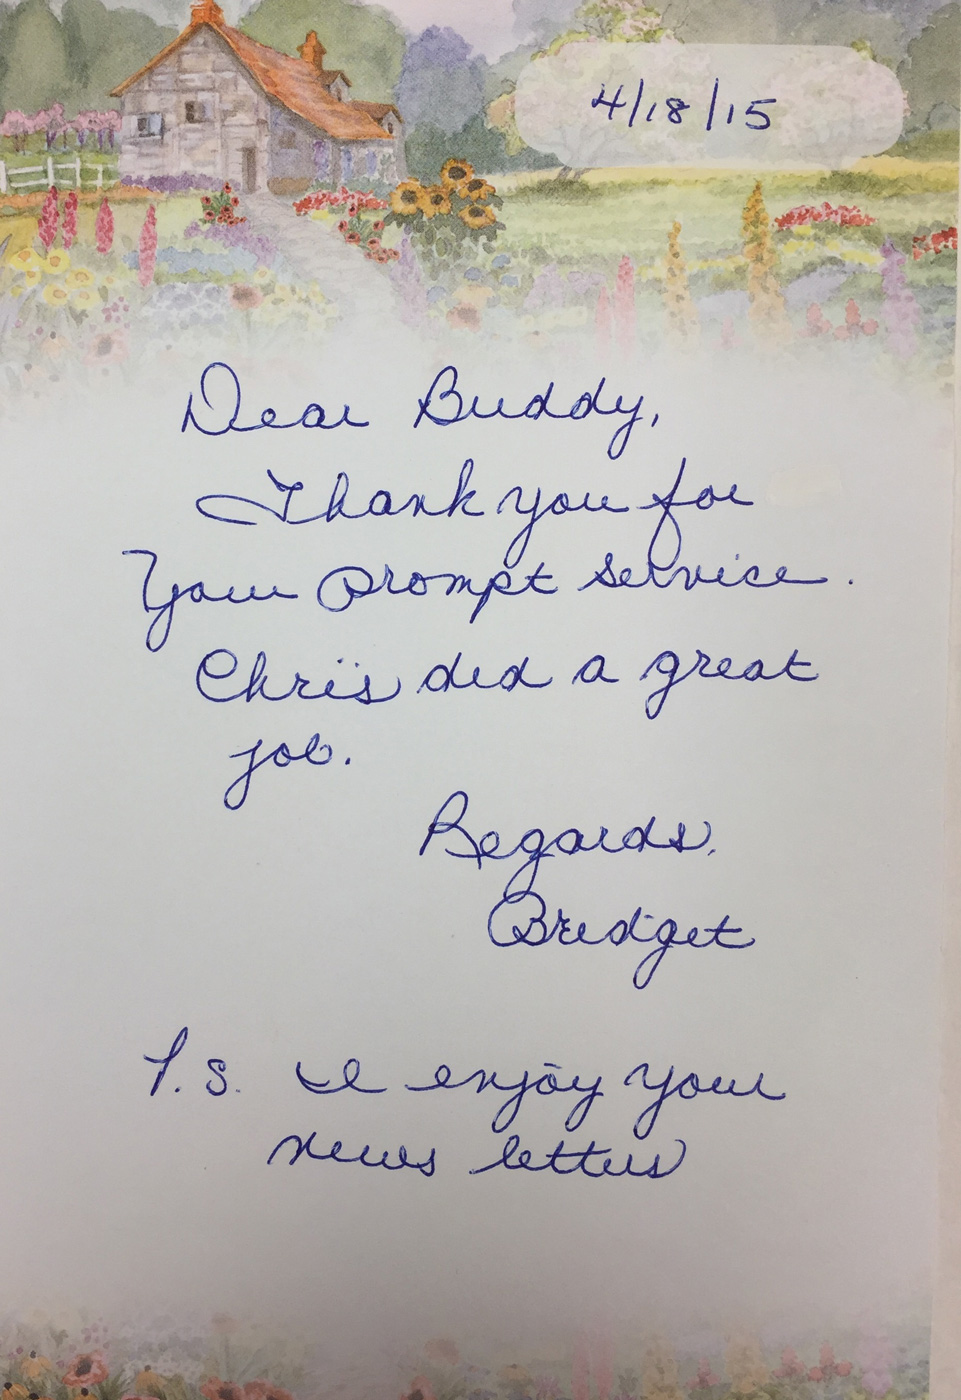 4/18/15
Dear Buddy,
Thank you for
Your prompt service.
Chris did a great
job.
Regards,
Bridget
P.S. I enjoy your
news letters